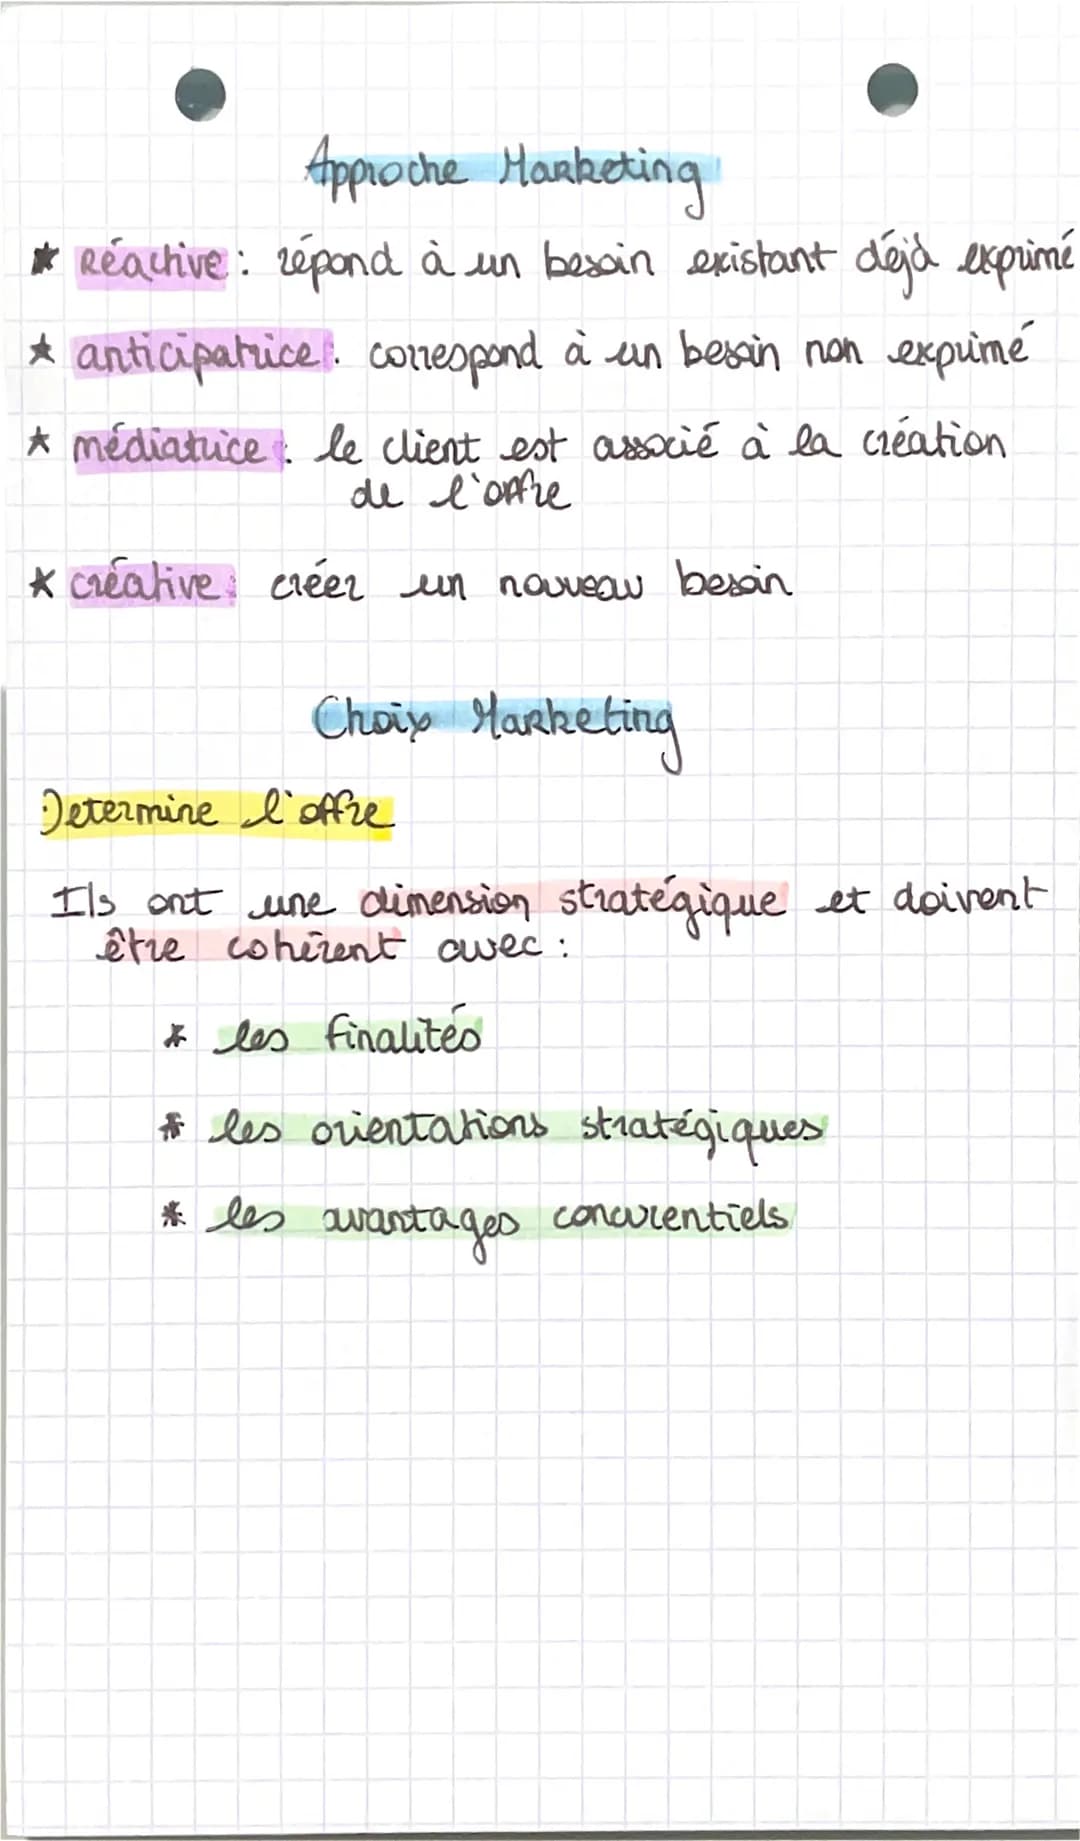 Approche Marketing
* Réactive : répond à un besoin existant déjà exprimé
* anticipatrice : correspond à un besoin non exprimé
* médiatrice : le client est associé à la création
de l'offre
* créative : créer un nouveau besoin
Choix Marketing
Determine l'offre
Ils ont une dimension stratégique et doivent
être cohérent avec :
* les finalités
* les orientations stratégiques
* les avantages concurentiels